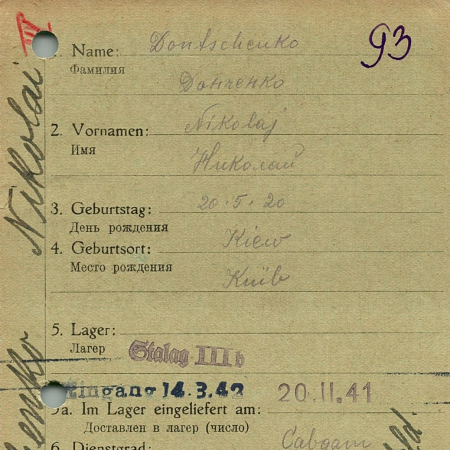 III
93
1. Name: Dontschenko
Фамилия
Донченко
2. Vornamen: Nikolaj
Имя
Николай
3. Geburtstag: 20.5.20
День рождения
4. Geburtsort: Kiew
Место рождения Київ
5. Lager:
Лагер
Stalag III b
Eingang 14.3.42 20.11.41
5a. Im Lager eingeliefert am:
Доставлен в лагер (число)
6. Dienstgrad:
Nikolai